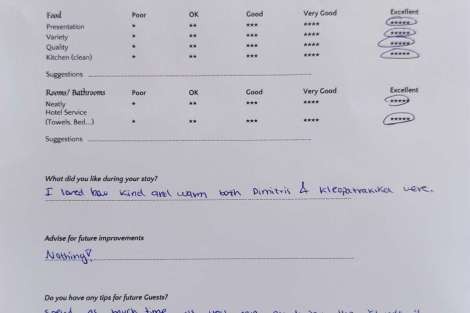 Food Poor OK Good Very Good Excellent
Presentation * ** *** **** *****
Variety * ** *** **** *****
Quality * ** *** **** *****
Kitchen (clean) * ** *** **** *****
Suggestions
Rooms/ Bathrooms Poor OK Good Very Good Excellent
Neatly * ** *** **** *****
Hotel Service
(Towels, Bed...) * ** *** **** *****
Suggestions
What did you like during your stay?
I loved how kind and warm both Dimitris & Kleopatrakika were.
Advise for future improvements
Nothing!
Do you have any tips for future Guests?
Spend as much time